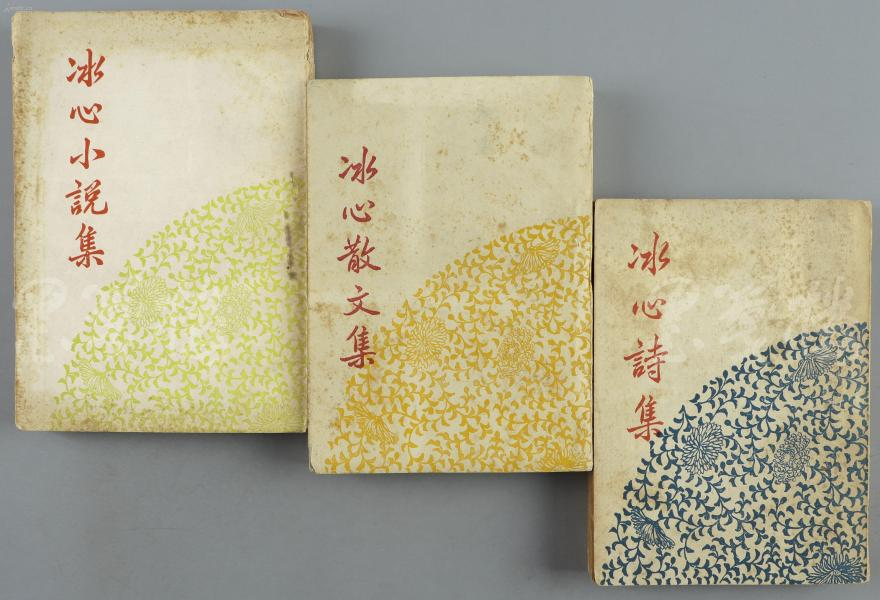 冰心小説集
冰心散文集
冰心詩集